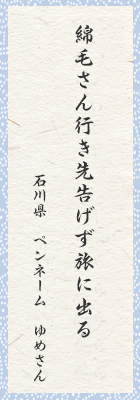 綿毛さん行き先告げず旅に出る
石川県　ペンネーム　ゆめさん